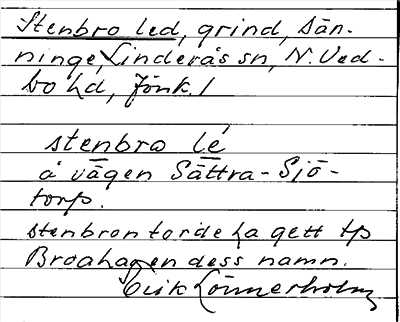 Stenbro led, grind, sän-
ninge, Linderås sn, N. Ved-
bo hd, Jönk. l
stenbro lé
å vägen Sättra-Sjö-
torp.
stenbron torde ha gett tp
Broahagen dess namn.
Erik Lönnerholm